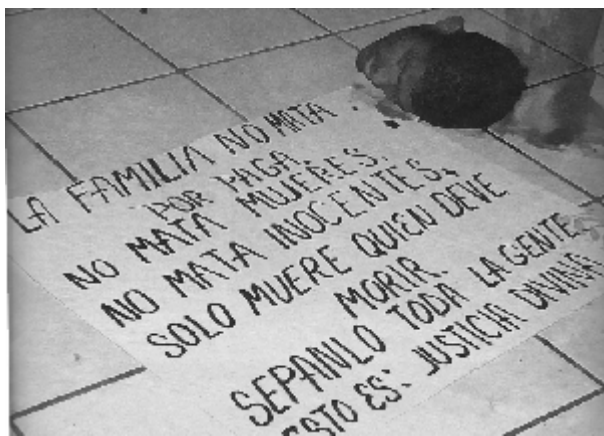 LA FAMILIA NO MATA
POR PAGA.
NO MATA MUJERES,
NO MATA INOCENTES,
SOLO MUERE QUIEN DEVE
MORIR.
SEPANLO TODA LA GENTE,
ESTO ES: JUSTICIA DIVINA